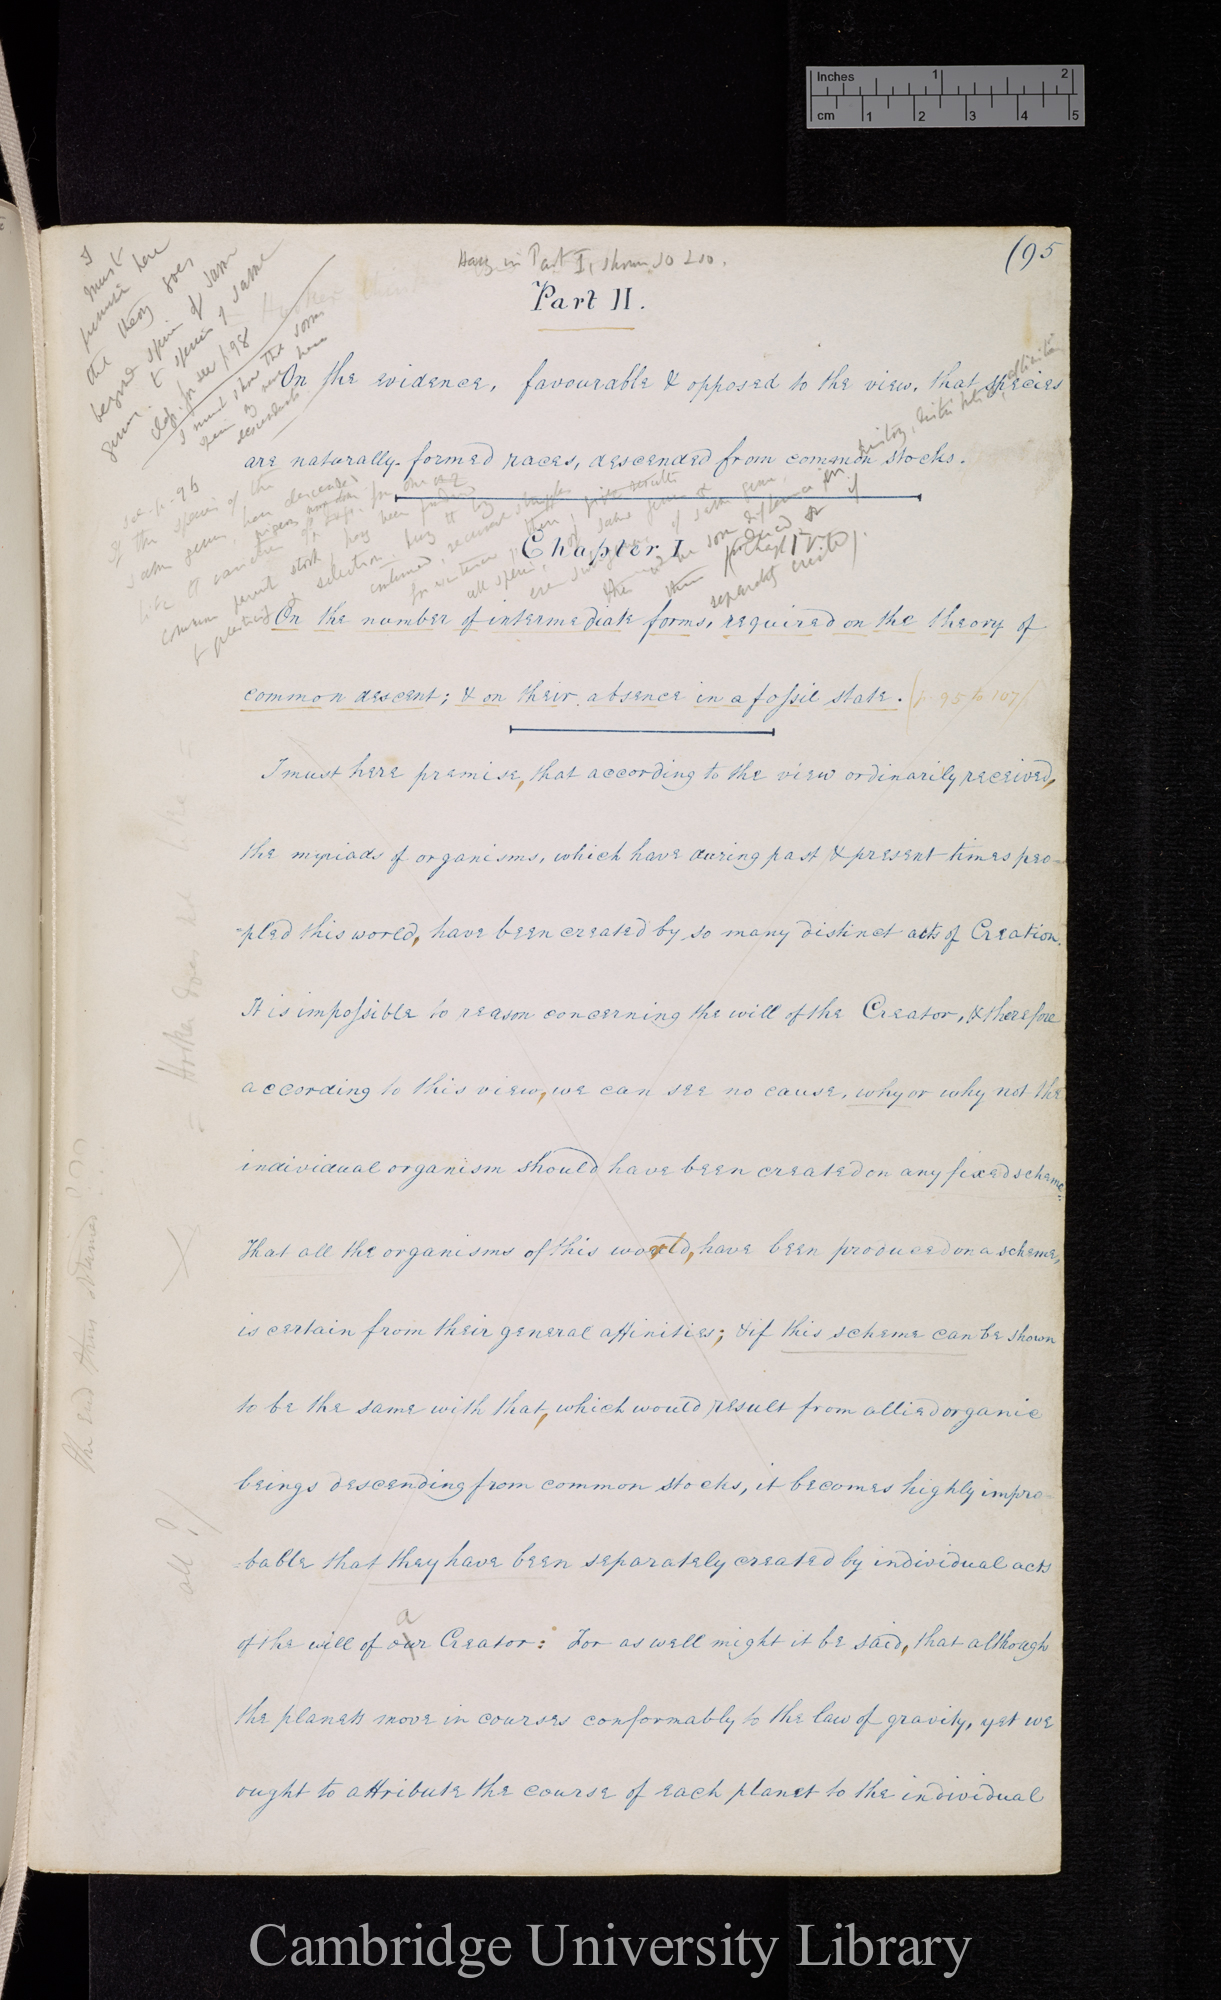 Inches 1 2
cm 1 2 3 4 5
(95
Have in Part I, shown so & so.
Part II.
I
must
premise here
the theory goes
beyond species of same
genus to species of same
class. for see p. 98
I must show that some
descendants
On the evidence, favourable & opposed to the view, that species
are naturally-formed races, descended from common stocks.
see p. 95
If the species of the
same genus, have descended
common parent stock
selection
separately created).
Chapter I
On the number of intermediate forms, required on the theory of
common descent; & on their absence in a fossil state. (p. 95 to 107)
I must here premise, that according to the view ordinarily received,
the myriads of organisms, which have during past & present times peo-
-pled this world, have been created by so many distinct acts of Creation.
It is impossible to reason concerning the will of the Creator, & therefore
according to this view, we can see no cause, why or why not the
individual organism should have been created on any fixed scheme.
That all the organisms of this world, have been produced on a scheme,
is certain from their general affinities; & if this scheme can be shown
to be the same with that, which would result from allied organic
beings descending from common stocks, it becomes highly impro-
-bable that they have been separately created by individual acts
of the will of our a Creator: For as well might it be said, that although
the planets move in courses conformably to the law of gravity, yet we
ought to attribute the course of each planet to the individual
Hooker does not like
all ?/
Cambridge University Library